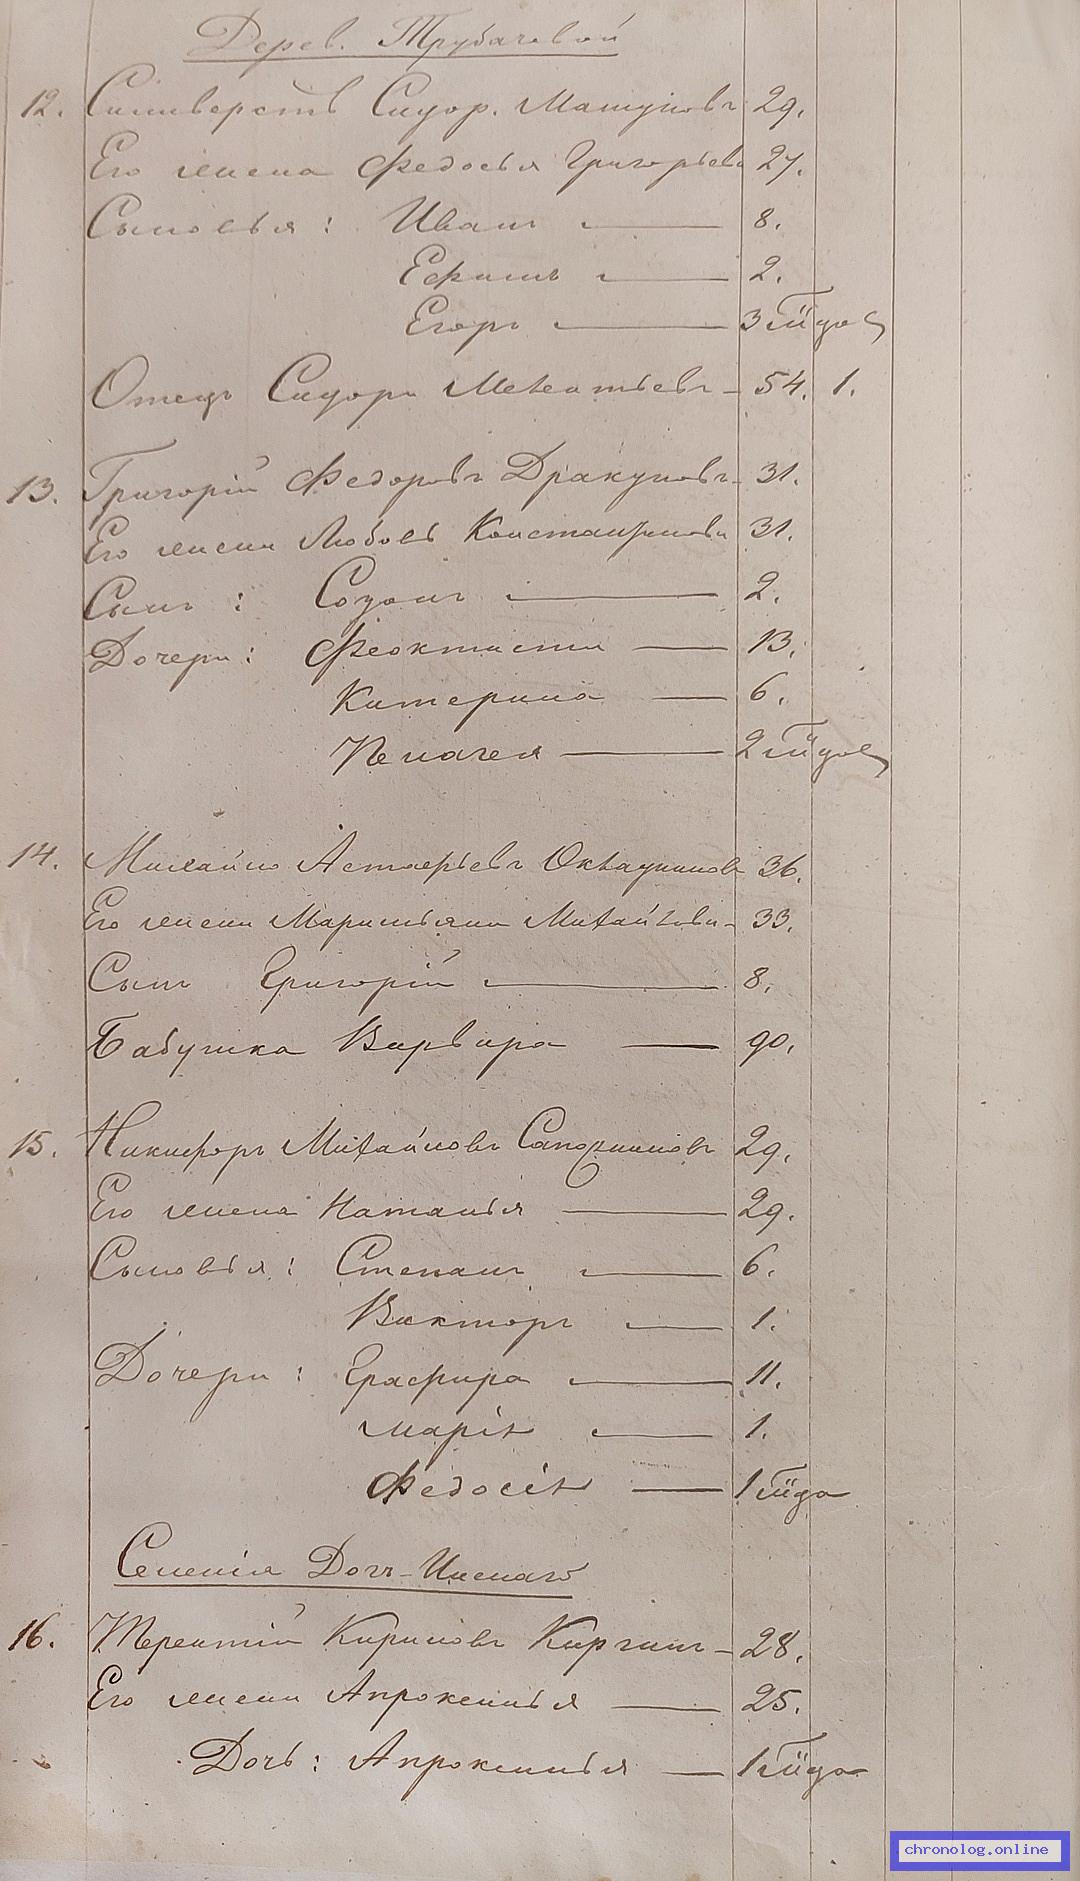 Дерев. Трубачевой
12. Силиверстъ Сидор. Машуковъ 29.
Его жена Федосья Григорьева 27.
Сыновья: Иванъ — 8.
Ефимъ — 2.
Егоръ — 3
Отецъ Сидоръ — 54. 1.
13. Григорій Федоровъ Дракуновъ 31.
Его жена Любовь Константинова 31.
Сынъ: Созонъ — 2.
Дочери: Феоктиста — 13.
Катерина — 6.
Пелагея — 2
14. Михайло Астафьевъ 36.
Его жена Маримьяна Михайлова — 33.
Сынъ Григорій — 8.
Бабушка Варвара — 90.
15. Никифоръ Михайловъ Сапожниковъ 29.
Его жена Наталья — 29.
Сыновья: Степанъ — 6.
Викторъ — 1.
Дочери: Графира — 11.
Марія — 1.
Федосія — 1
Селенія
16. Терентій Кириловъ Киргинъ — 28.
Его жена Апроксинья — 25.
Дочь: Апроксинья — 1
chronolog.online